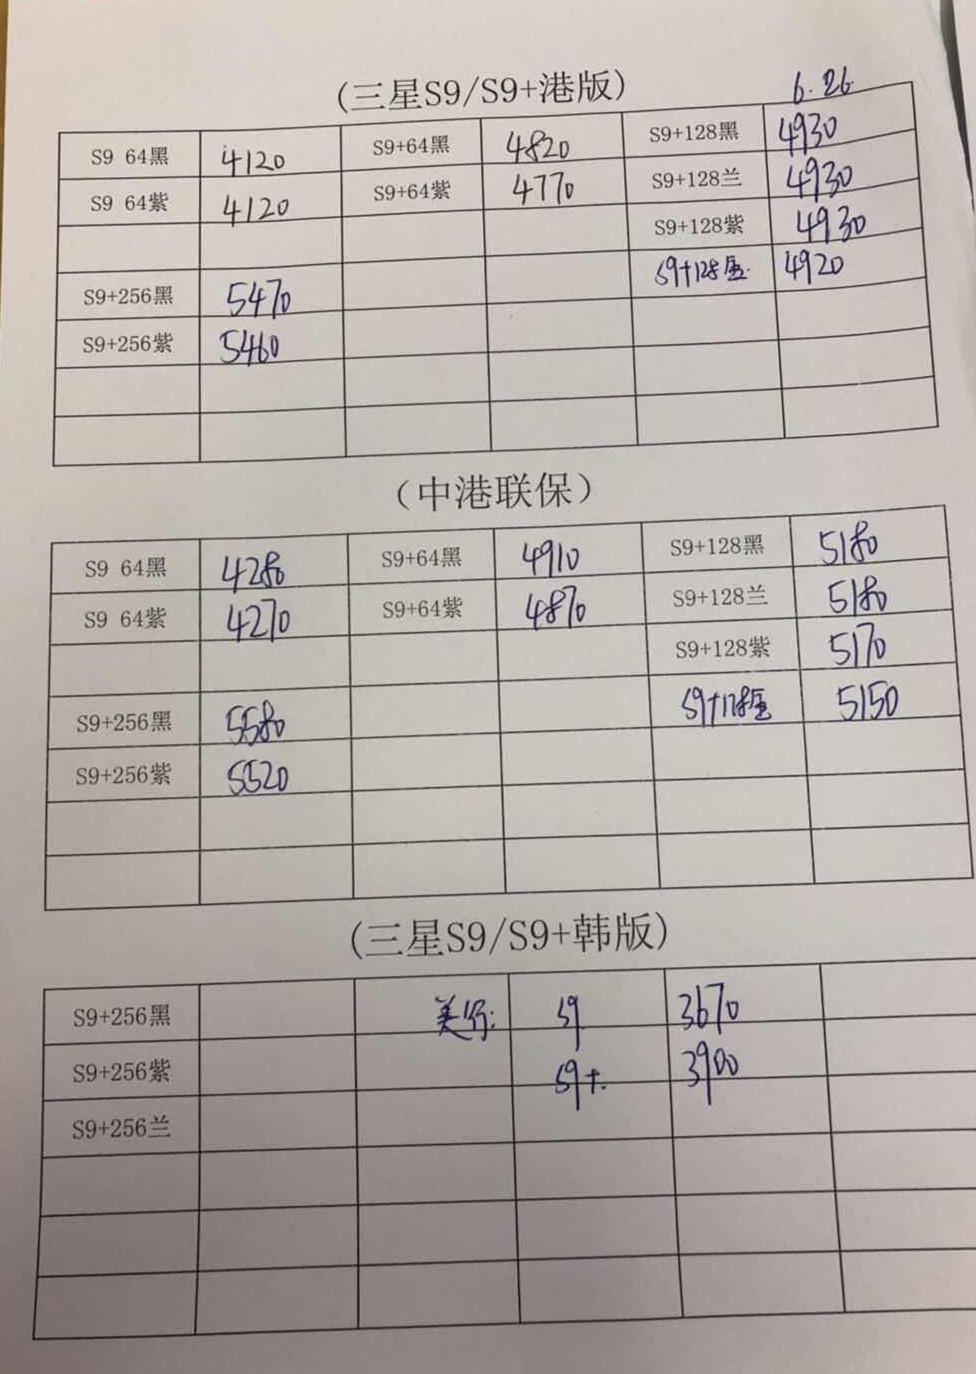 (三星S9/S9+港版)
6.26
S9 64黑 4120 S9+64黑 4820 S9+128黑 4930
S9 64紫 4120 S9+64紫 4770 S9+128兰 4930
S9+128紫 4930
S9+128金 4920
S9+256黑 5470
S9+256紫 5460
(中港联保)
S9 64黑 4280 S9+64黑 4910 S9+128黑 5180
S9 64紫 4270 S9+64紫 4870 S9+128兰 5180
S9+128紫 5170
S9+256黑 5580 S9+128金 5150
S9+256紫 5520
(三星S9/S9+韩版)
S9+256黑 美行: S9 3670
S9+256紫 S9+. 3900
S9+256兰